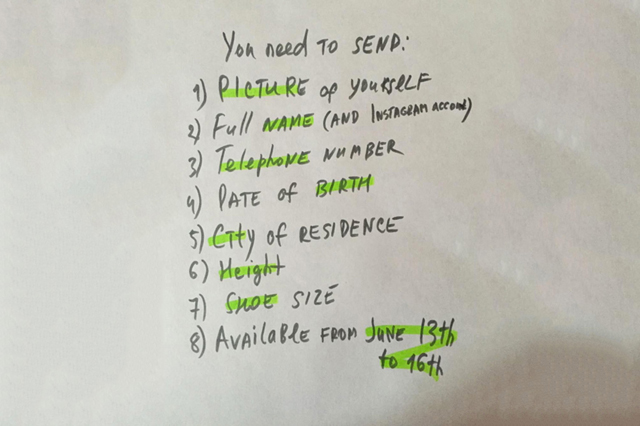 You need to SEND:
1) PICTURE of yourSELF
2) Full NAME (AND INSTAGRAM account)
3) Telephone NUMBER
4) DATE of BIRTH
5) City of RESIDENCE
6) Height
7) SHOE SIZE
8) AvailablE FROM JUNE 13th
to 16th